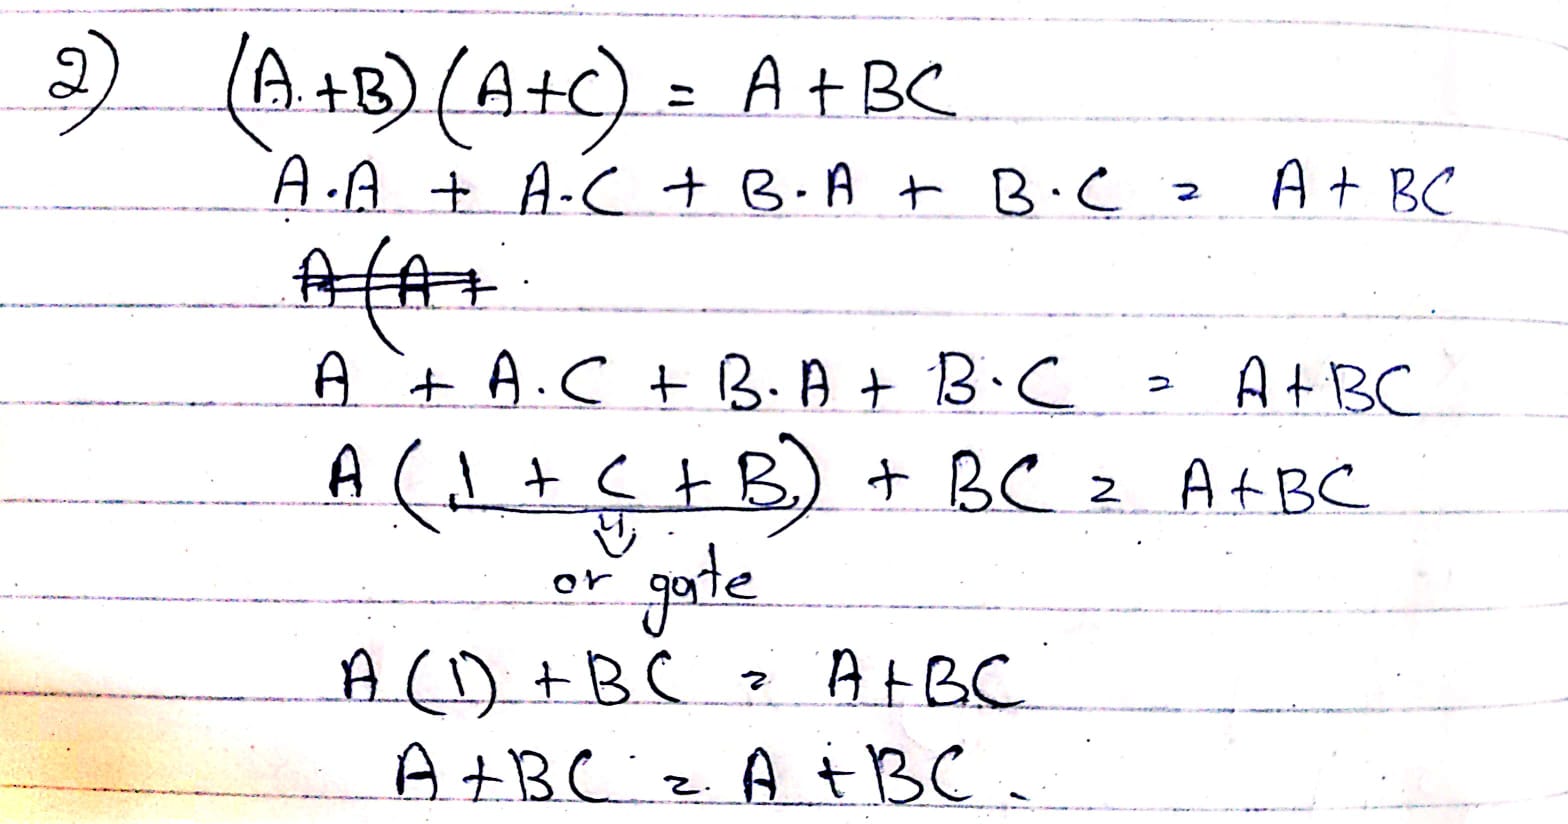 2) (A.+B)(A+C) = A + BC
A.A + A.C + B.A + B.C = A + BC
A(A+
A + A.C + B.A + B.C = A+BC
A(1 + C + B) + BC = A+BC
or gate
A(1) + BC = A+BC
A+BC = A + BC.